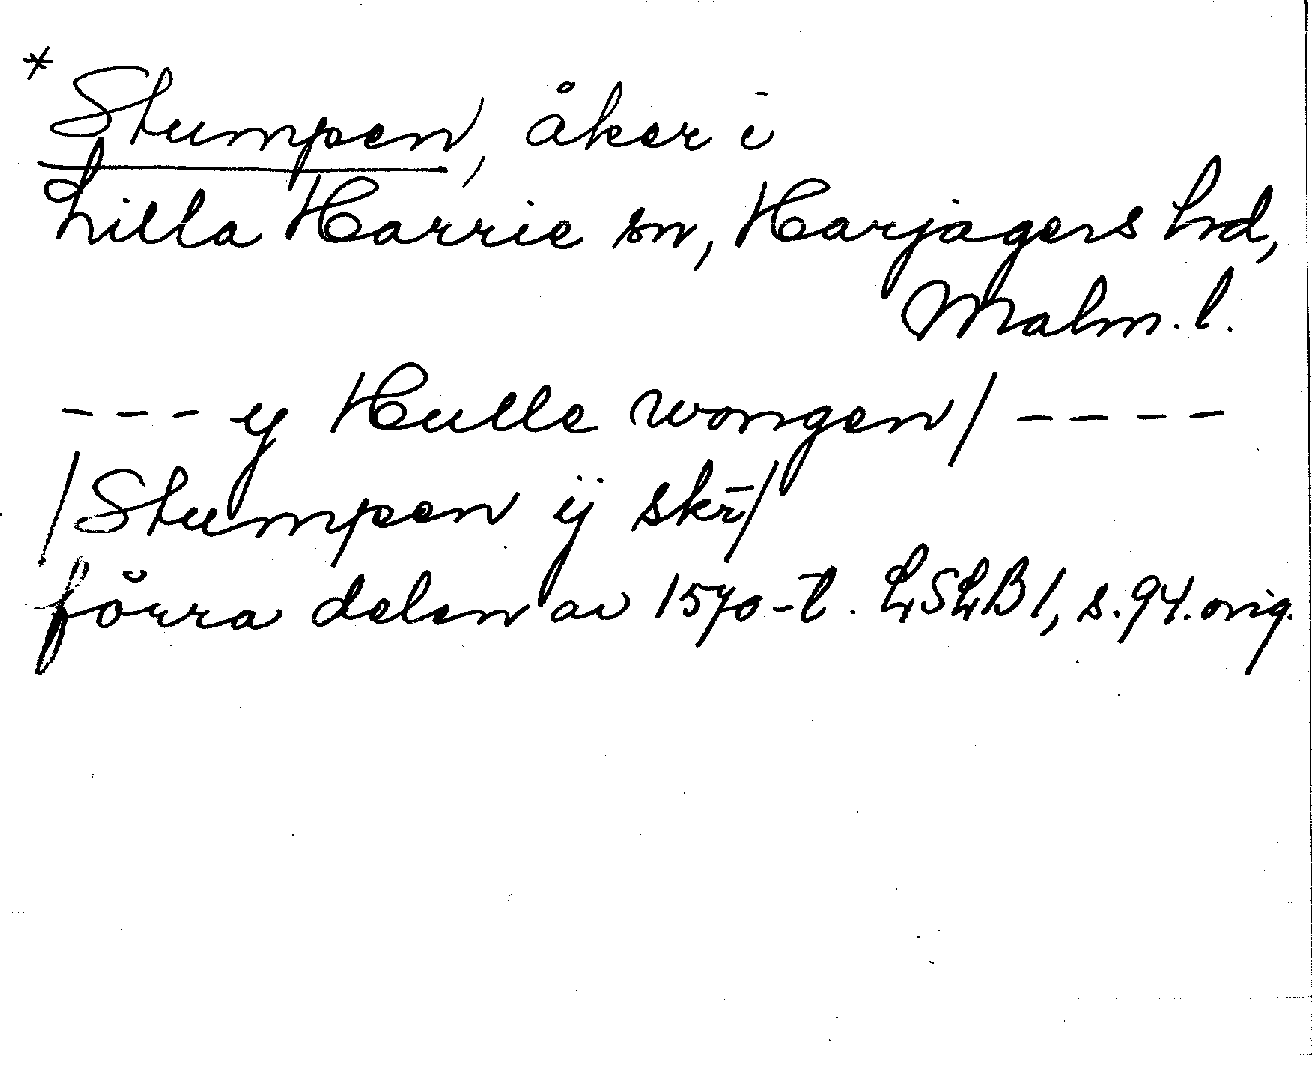 * Stumpen, åker i
Lilla Harrie sn, Harjagers hd,
Malm. l.
- - - ij Hulle wongen/ - - - -
/Stumpen ij skr̄/
förra delen av 1570-t. LSLB 1, s. 94. orig.